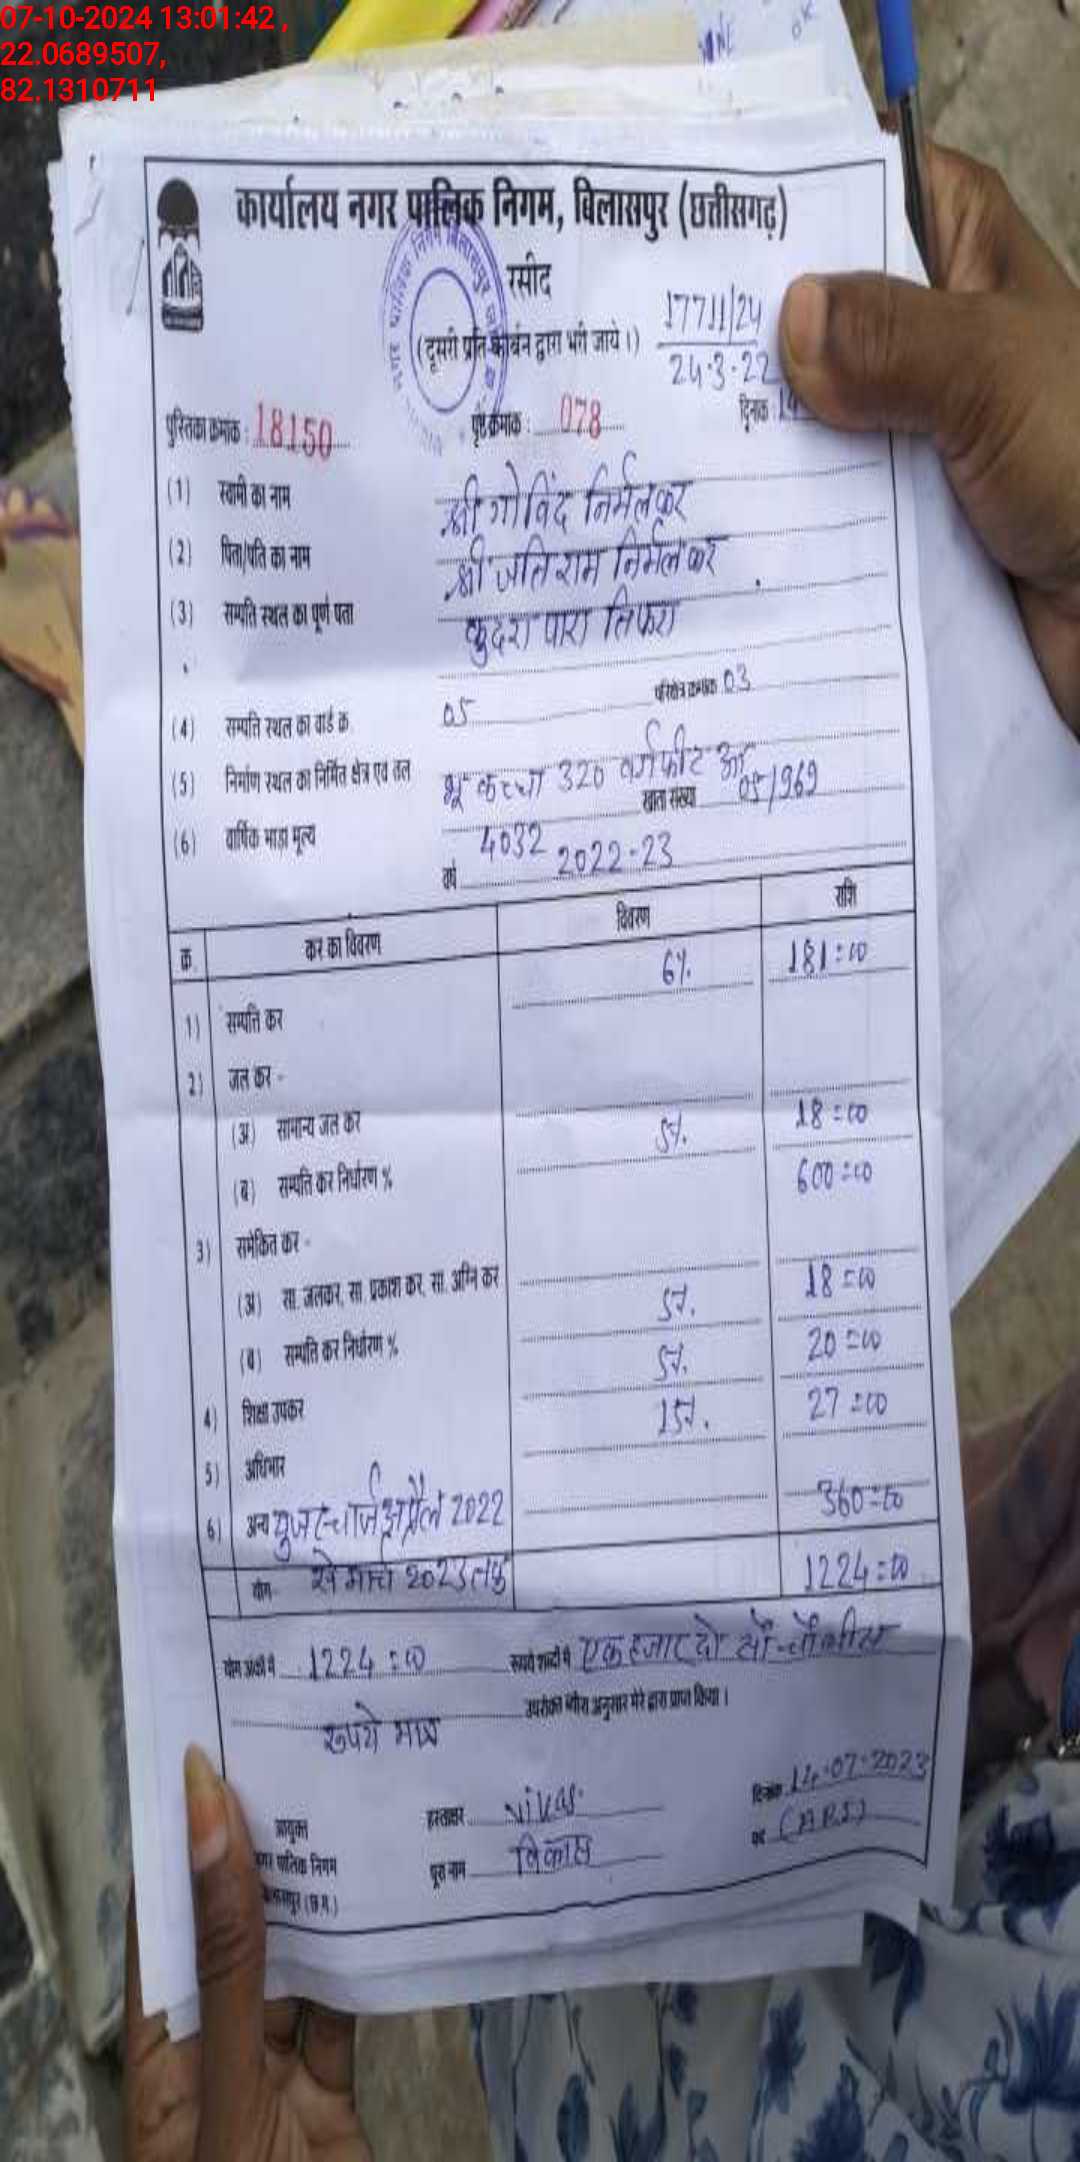 07-10-2024 13:01:42 ,
22.0689507,
82.1310711
कार्यालय नगर पालिक निगम, बिलासपुर (छत्तीसगढ़)
रसीद
17711/24
(दूसरी प्रति कार्बन द्वारा भरी जाये।)
24.3.22
पुस्तिका क्रमांक : 18150 पृष्ठ क्रमांक : 078 दिनांक
(1) स्वामी का नाम श्री गोविंद निर्मलकर
(2) पिता/पति का नाम श्री जतिराम निर्मलकर
(3) सम्पति स्थल का पूर्ण पता कुदरा पारा तिफरा
(4) सम्पति स्थल का वार्ड क्र. 05 परिक्षेत्र क्रमांक 03
(5) निर्माण स्थल का निर्मित क्षेत्र एवं तल भू कच्चा 320 वर्गफीट
खाता संख्या 05/969
(6) वार्षिक भाड़ा मूल्य 4032
वर्ष 2022-23
क्र. कर का विवरण विवरण राशि
1) सम्पत्ति कर 6% 181=00
2) जल कर -
(अ) सामान्य जल कर
(ब) सम्पति कर निर्धारण % 5% 18=00
600=00
3) समेकित कर -
(अ) सा. जलकर, सा. प्रकाश कर, सा. अग्नि कर
(ब) सम्पति कर निर्धारण % 5% 18=00
4) शिक्षा उपकर 5% 20=00
5) अधिभार 15% 27=00
6) अन्य युजर चार्ज अप्रैल 2022 360=00
योग से मार्च 2023 तक 1224=00
योग अंकों में 1224=00 रूपये शब्दों में एक हजार दो सौ चौबीस
रुपये मात्र उपरोक्त ब्यौरा अनुसार मेरे द्वारा प्राप्त किया।
आयुक्त हस्ताक्षर Vikas दिनांक 14-07-2023
पालिक निगम पूरा नाम विकास पद (ARI)
(छ.ग.)